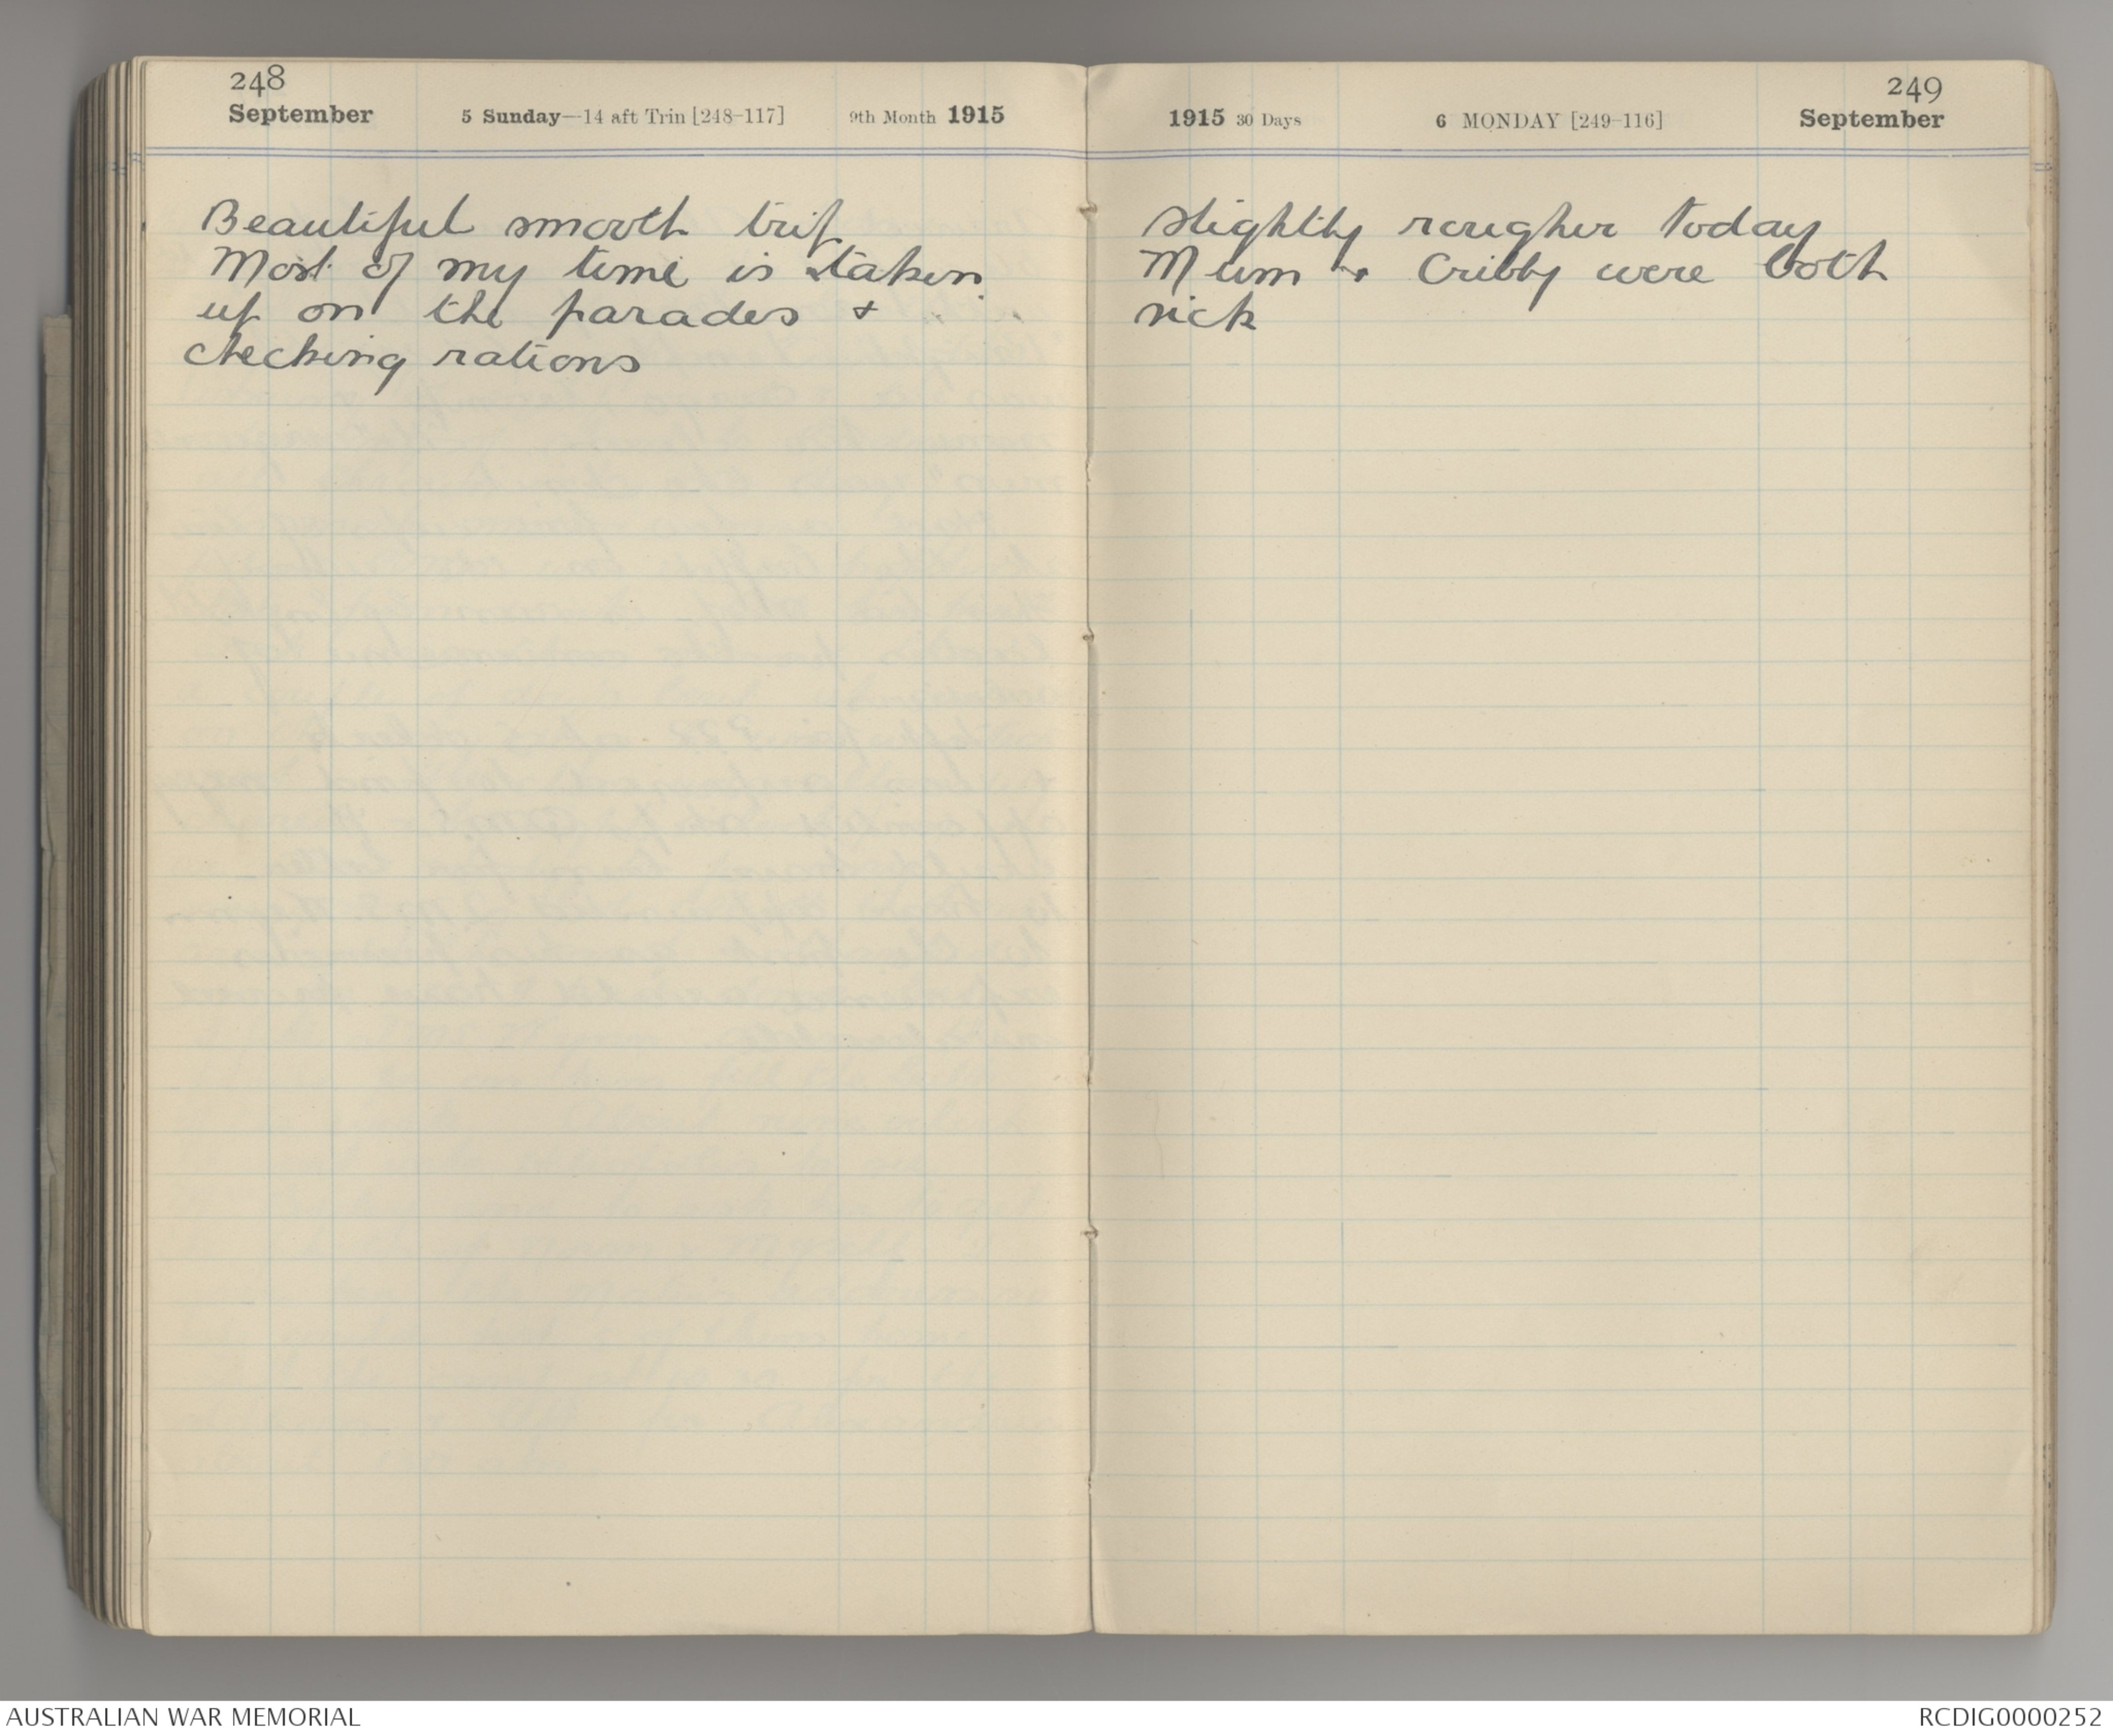 248
September 5 Sunday—14 aft Trin [248-117] 9th Month 1915
Beautiful smooth trip
Most of my time is taken
up on the parades &
checking rations
249
1915 30 Days 6 MONDAY [249-116] September
Slightly rougher today
Mum & Cribby were both
sick
AUSTRALIAN WAR MEMORIAL
RCDIG0000252